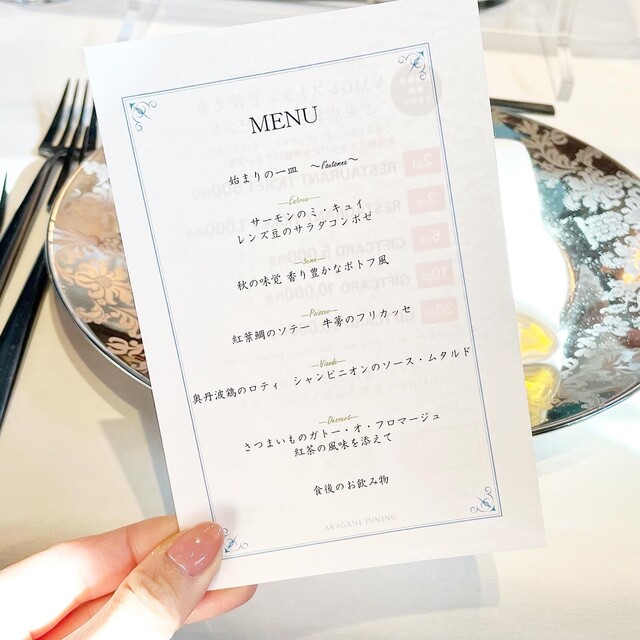 MENU
始まりの一皿 〜L'automne〜
Entrée
サーモンのミ・キュイ
レンズ豆のサラダコンポゼ
秋の味覚 香り豊かなポトフ風
Poisson
紅葉鯛のソテー 牛蒡のフリカッセ
Viande
奥丹波鶏のロティ シャンピニオンのソース・ムタルド
Dessert
さつまいものガトー・オ・フロマージュ
紅茶の風味を添えて
食後のお飲み物
AKAGANE DINING